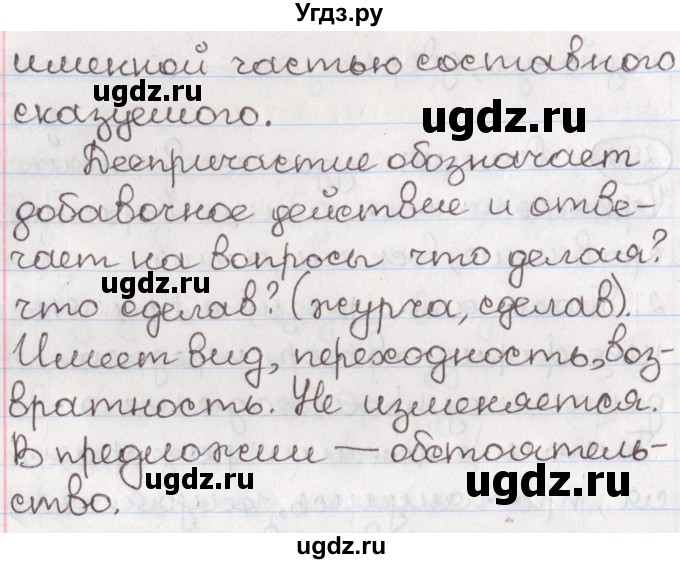 Угдз.ру
именной частью составного
ugdz.ru
сказуемого.
ugdz.ru
Деепричастие обозначает
добавочное действие и отве-
чает на вопросы что делая?
ugdz.ru
что сделав? (журча, сделав).
Имеет вид, переходность, воз-
вратность. Не изменяется.
В предложении — обстоятель-
ugdz.ru
ugdz.ru
ство.
ugdz.ru